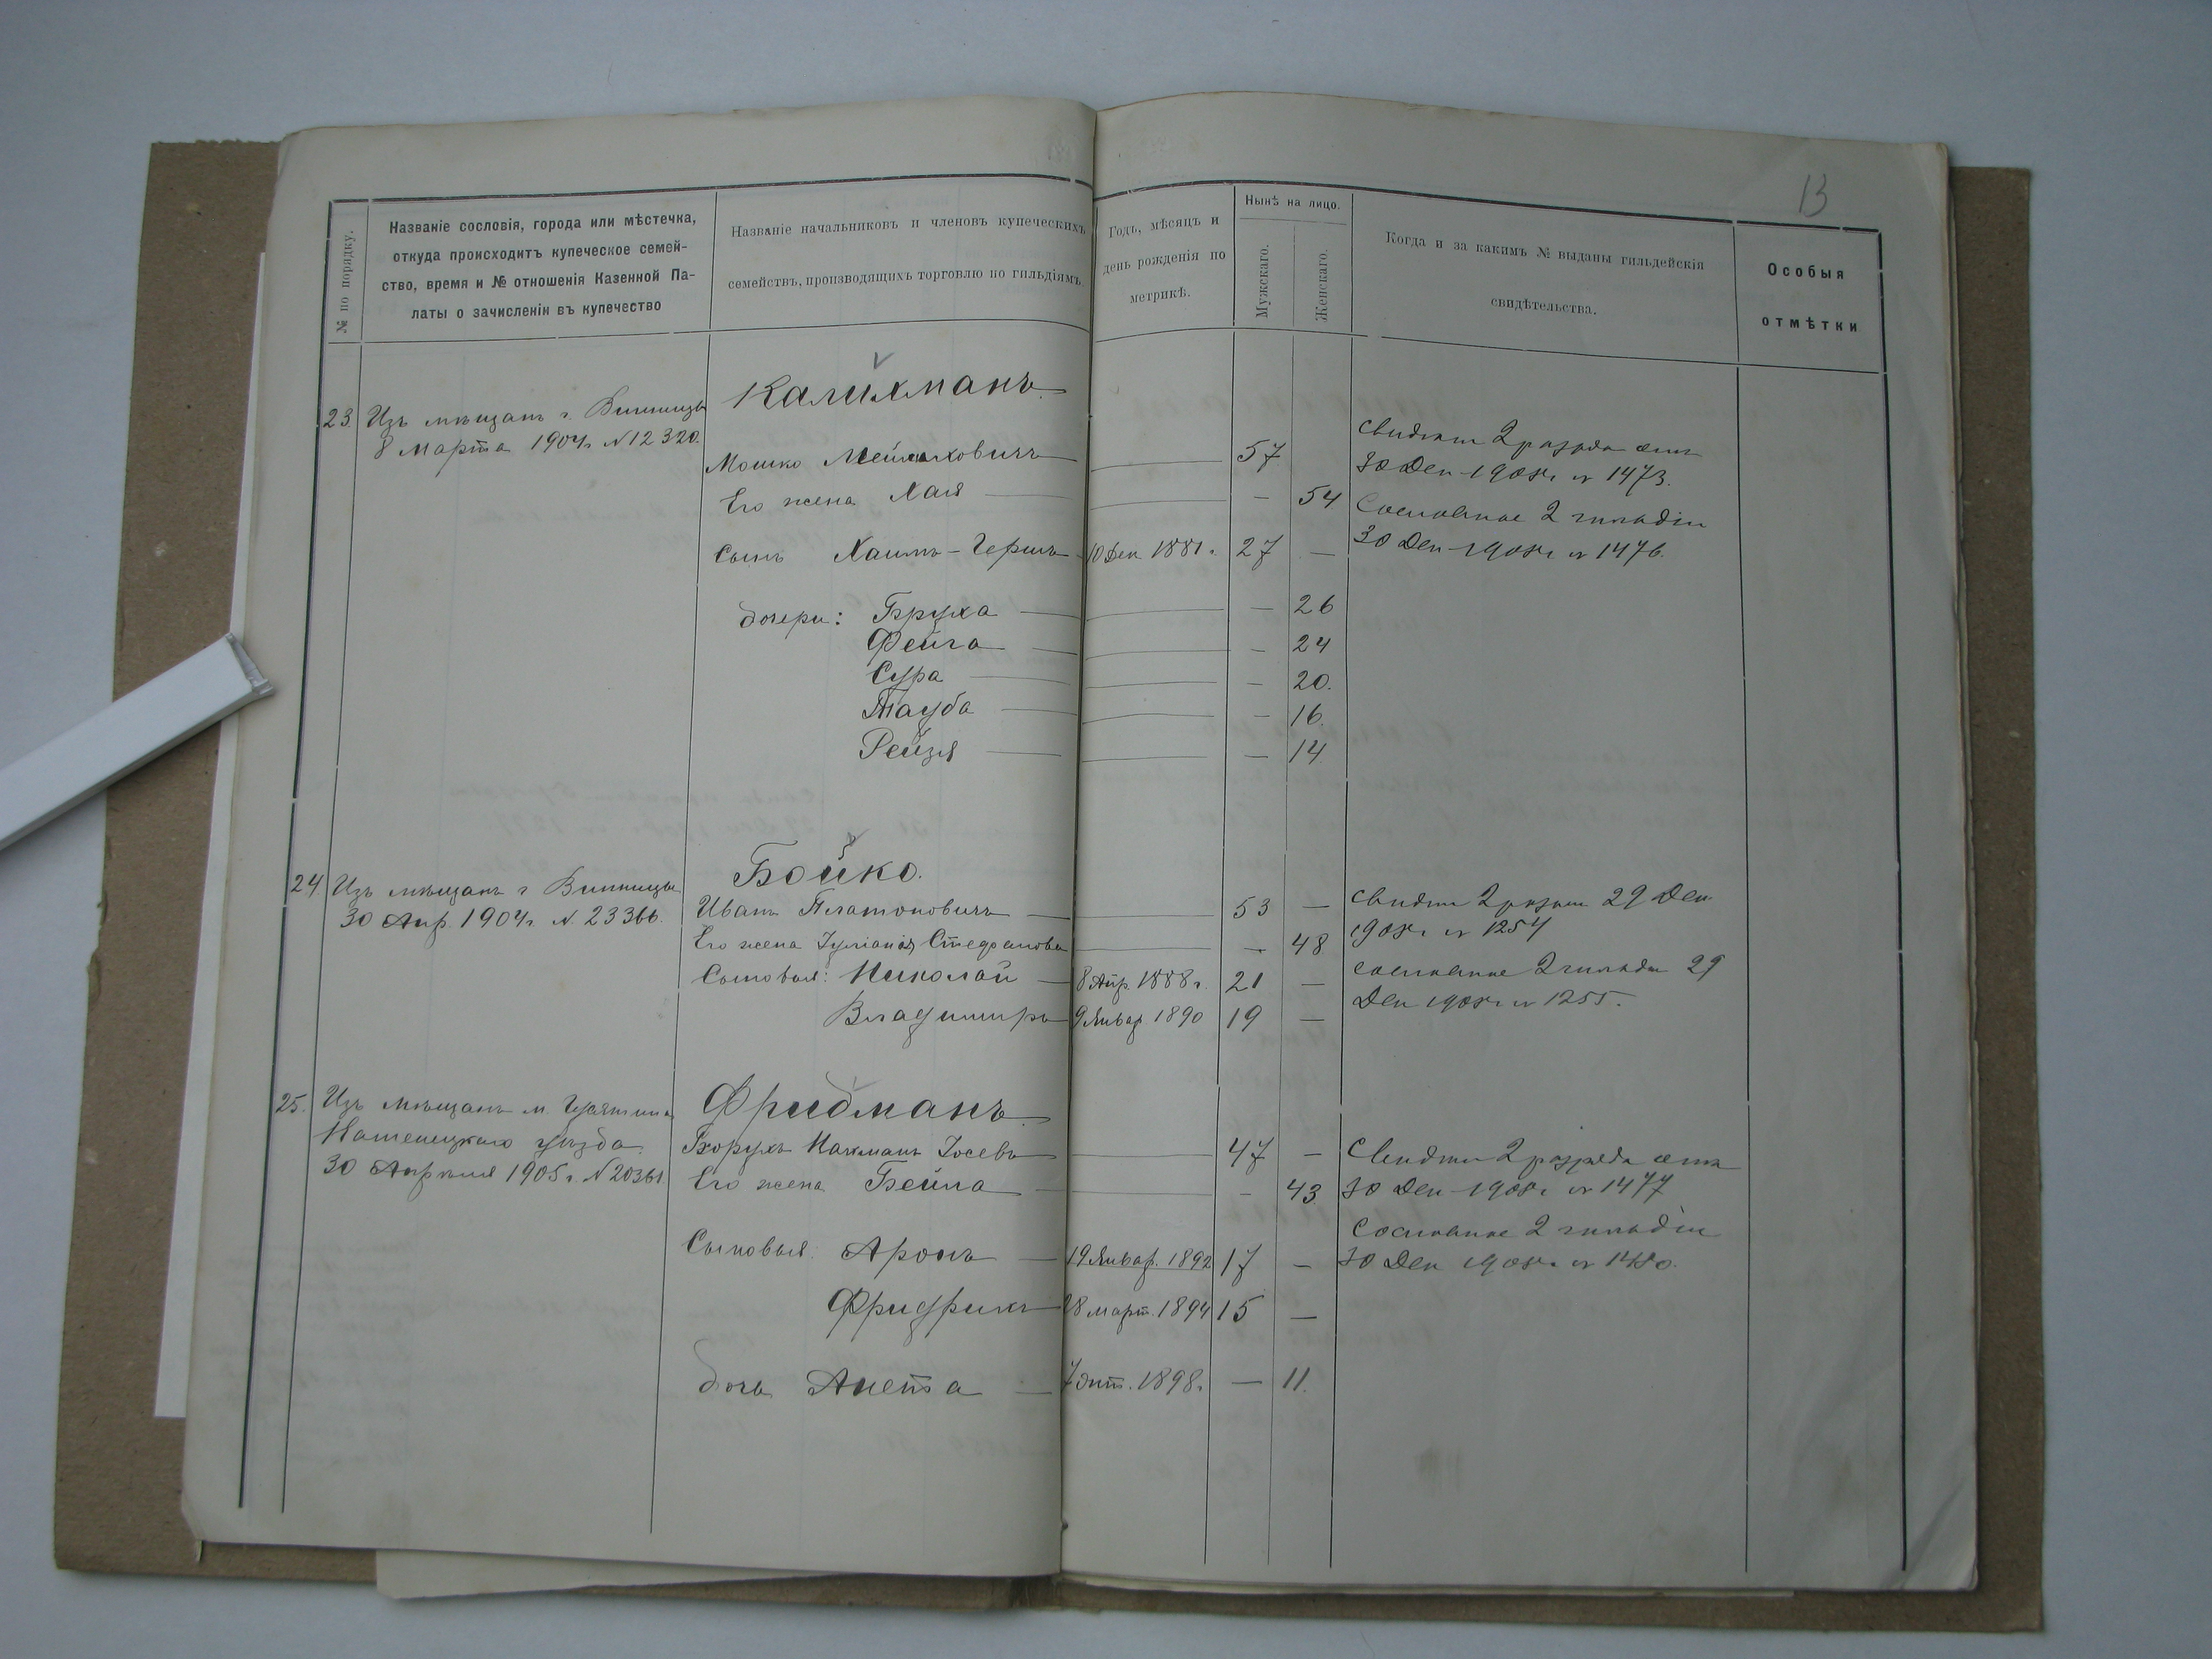 13
№ по порядку.
Названіе сословія, города или мѣстечка,
откуда происходитъ купеческое семей-
ство, время и № отношенія Казенной Па-
латы о зачисленіи въ купечество
Названіе начальниковъ и членовъ купеческихъ
семействъ, производящихъ торговлю по гильдіямъ
Годъ, мѣсяцъ и
день рожденія по
метрикѣ.
Нынѣ на лицо.
Мужскаго.
Женскаго.
Когда и за какимъ № выданы гильдейскія
свидѣтельства.
Особыя
отмѣтки
Калихманъ.
23. Изъ мѣщанъ г. Винницы
8 Марта 1904 г. № 12320.
Мошко Мейлиховичъ — 57
Его жена Хая — — 54
Сынъ Хаимъ-Гершъ 10 Дек. 1881 г. 27 —
дочери: Бруха — — 26
Фейга — — 24
Сура — — 20.
Тауба — — 16.
Рейзя — — 14
2 разряда
30 Дек 1908 г № 1473.
Сословное 2 гильдіи
30 Дек 1908 г № 1476.
Бойко.
24. Изъ мѣщанъ г Винницы
30 Апр. 1904 г. № 23366.
Иванъ Платоновичъ — 53 —
Его жена Іуліанія Стефанова — — 48
Сыновья: Николай — 8 Апр. 1888 г. 21 —
Владимиръ 9 Январ 1890 19 —
29 Дек
1908 г № 1254
сословное 2 гильди 29
Дек 1908 г № 1255.
Фридманъ.
25. Изъ мѣщанъ м.
уѣзда
30 Апрѣля 1905 г. № 20361
Борухъ Нахманъ Іосевъ — 47 —
Его жена Бейла — — 43
Сыновья. Аронъ — 19 Январ. 1892 17 —
Фридрихъ 28 март. 1894 15 —
дочь Анета — 7 окт. 1898 г. — 11.
2 разряда
30 Дек 1908 г № 1477
Сословное 2 гильдіи
30 Дек 1908 г № 1480.